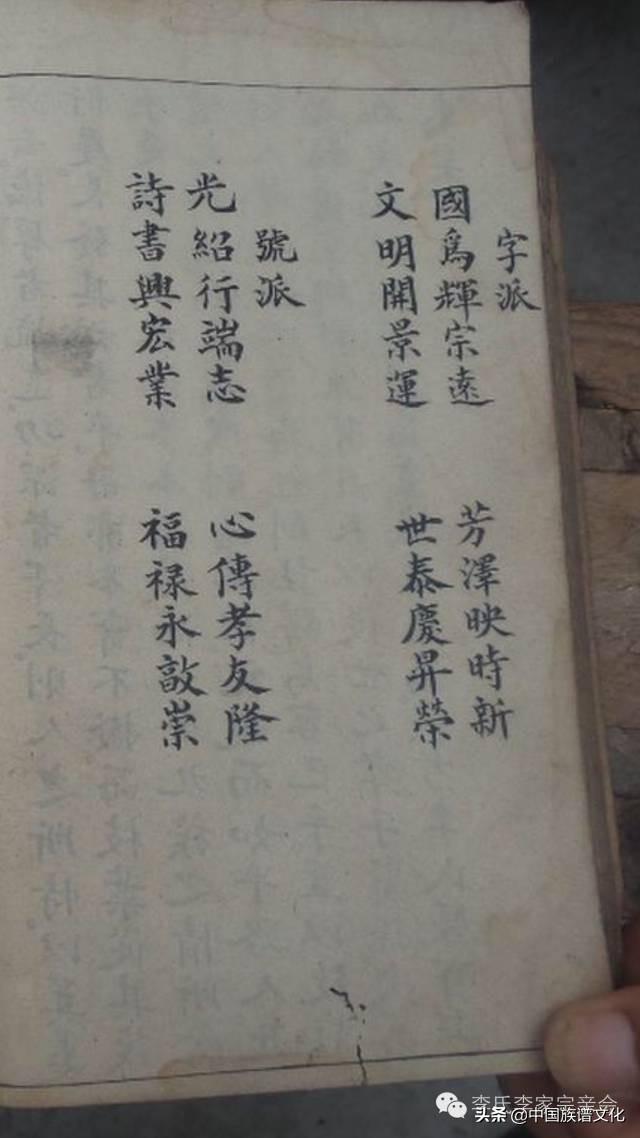 字派
國爲輝宗遠 芳澤映時新
文明開景運 世泰慶昇榮
號派
光紹行端志 心傳孝友隆
詩書興宏業 福禄永敨崇
李氏李家宗亲会
头条 @中国族谱文化